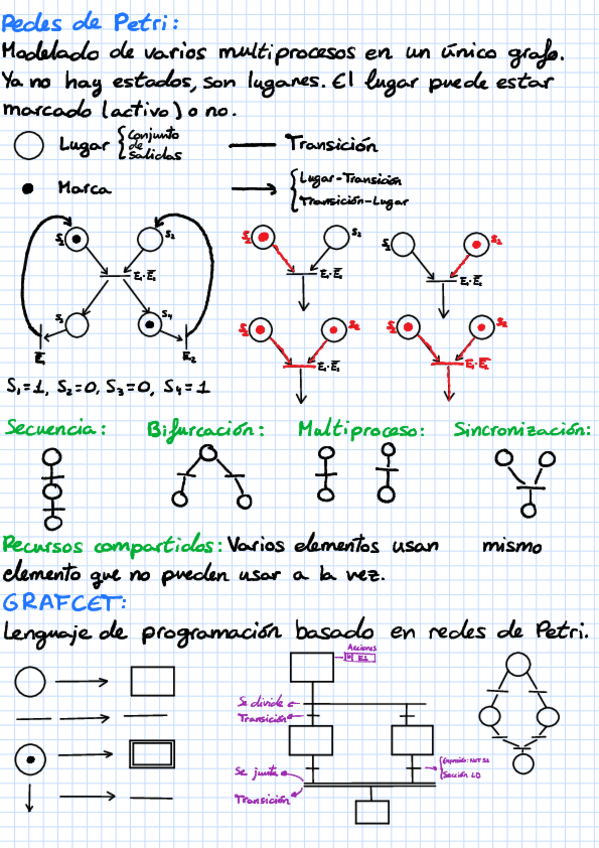 Redes de Petri:
Modelado de varios multiprocesos en un único grafo.
Ya no hay estados, son lugares. El lugar puede estar
marcado (activo) o no.
Lugar {Conjunto de salidas
Transición
Marca
{Lugar-Transición
Transición-Lugar
S₁ S₂
E₁·E̅₂
S₃ S₄
E₂
S₁=1, S₂=0, S₃=0, S₄=1
Secuencia: Bifurcación: Multiproceso: Sincronización:
Recursos compartidos: Varios elementos usan mismo
elemento que no pueden usar a la vez.
GRAFCET:
Lenguaje de programación basado en redes de Petri.
Acciones
Se divide
Transición
Se junta
Transición